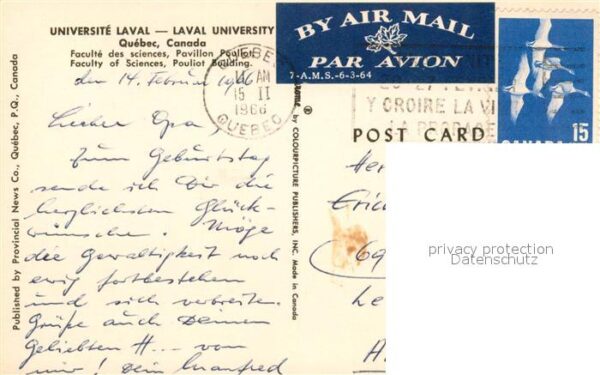 UNIVERSITÉ LAVAL — LAVAL UNIVERSITY
Québec, Canada
Faculté des sciences, Pavillon Pouliot.
Faculty of Sciences, Pouliot Building.
den 14. Februar 1966
Lieber Opa,
Zum Geburtstag
sende ich Dir die
herzlichsten Glück-
wünsche. Möge
die Gewaltigkeit noch
ewig fortbestehen
und sich verbreiten.
Grüße auch Deinen
Geliebten H... von
mir! Dein Manfred
Published by Provincial News Co., Québec, P.Q., Canada
by COLOURPICTURE PUBLISHERS, INC. Made in Canada
BY AIR MAIL
PAR AVION
7-A.M.S.-6-3-64
QUEBEC
AM
15 II
1966
QUEBEC
Y CROIRE LA VI
POST CARD
CANADA
15
Her
Eric
69
Le
A
privacy protection
Datenschutz